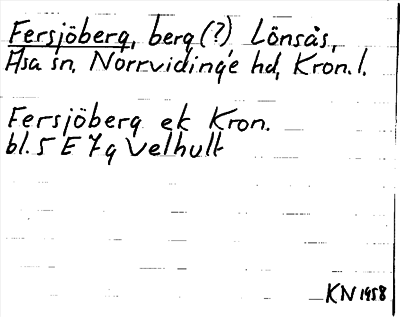 Fersjöberg, berg (?) Lönsås,
Asa sn, Norrvidinge hd, Kron. l.
Fersjöberg ek Kron.
bl. 5 E 7 g Velhult
KN 1958